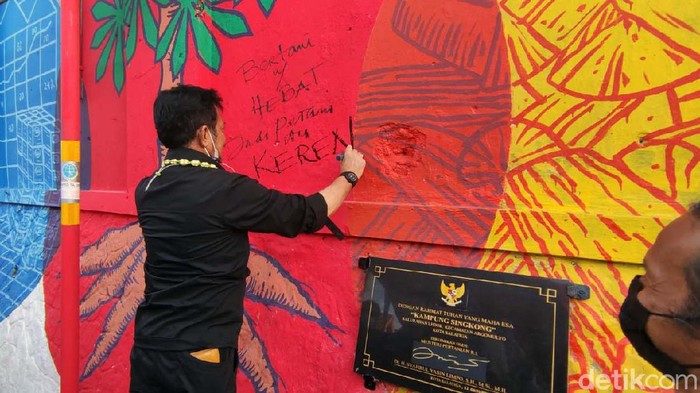 Bertani
HEBAT
Jadi Petani
KEREN
DENGAN RAHMAT TUHAN YANG MAHA ESA
"KAMPUNG SINGKONG"
KECAMATAN ARGOMULYO
KOTA SALATIGA
MENTERI PERTANIAN R.I
Dr. H. SYAHRUL YASIN LIMPO, S.H., M.Si., M.H
detikcom